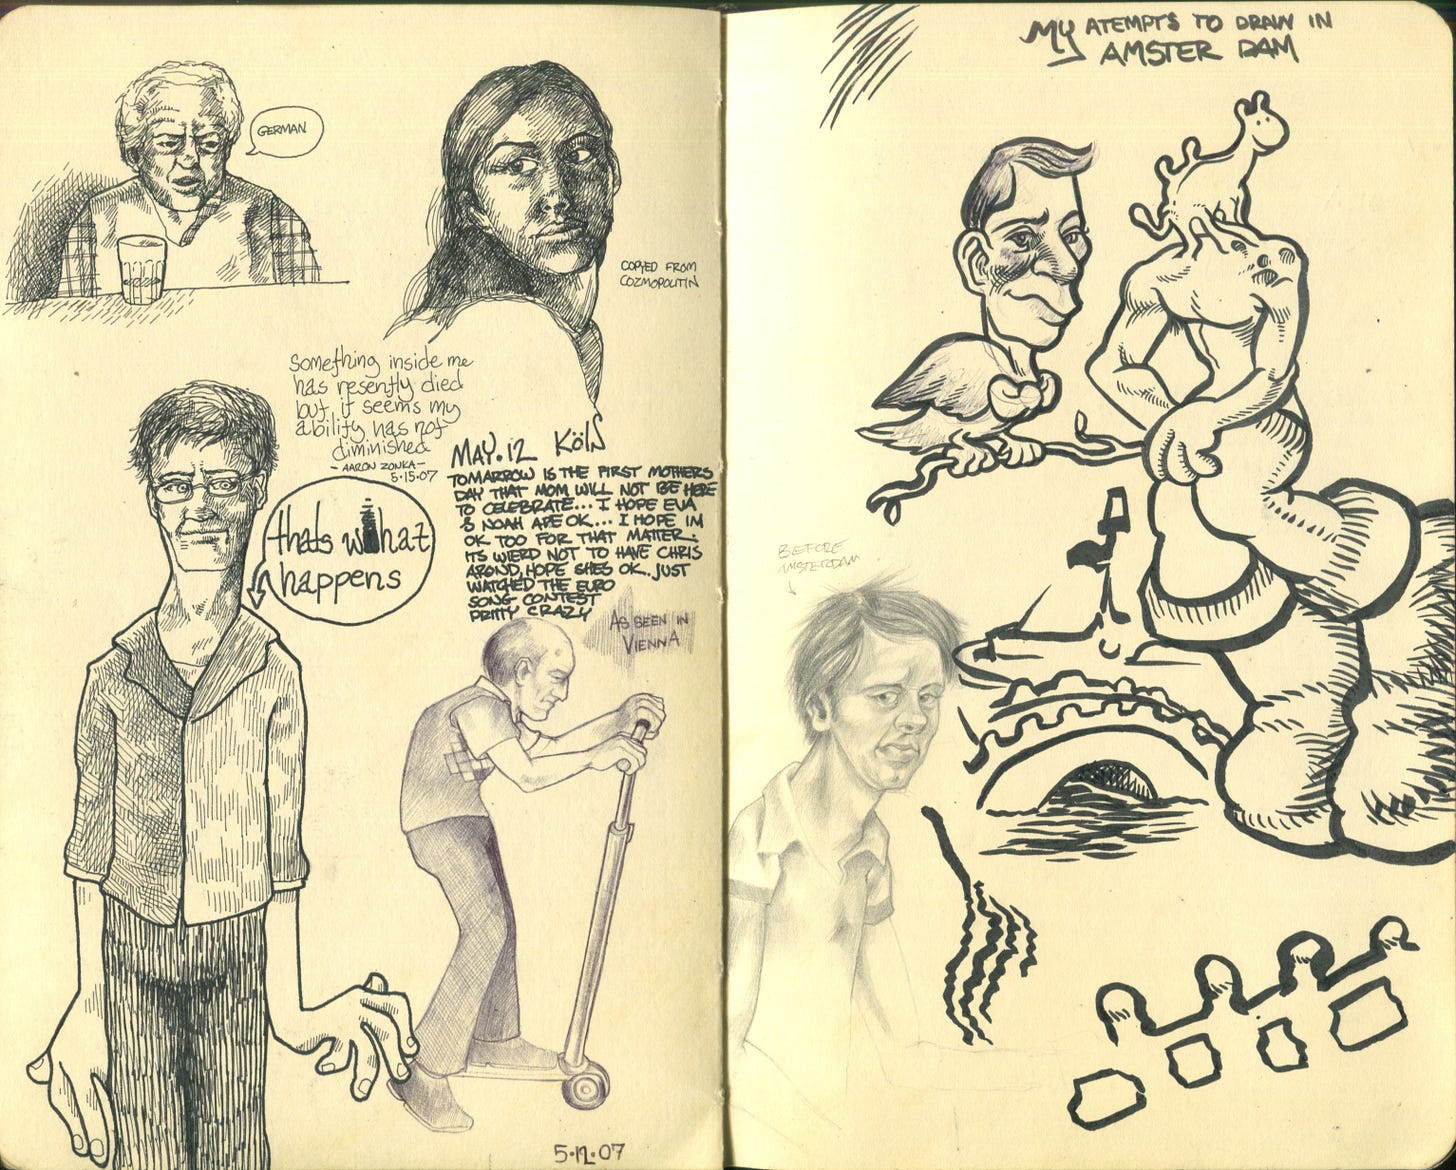 GERMAN
COPYED FROM
COZMOPOLITIN
Something inside me
has resently died
but it seems my
ability has not
diminished
-AARON ZONKA-
5-15-07
thats what
happens
MAY.12 KÖLN
TOMARROW IS THE FIRST MOTHERS
DAY THAT MOM WILL NOT BE HERE
TO CELEBRATE... I HOPE EVA
& NOAH ARE OK... I HOPE IM
OK TOO FOR THAT MATTER.
ITS WIERD NOT TO HAVE CHRIS
AROND, HOPE SHES OK. JUST
WATCHED THE EURO
SONG CONTEST
PRITTY CRAZY
AS SEEN IN
VIENNA
5.12.07
MY ATEMPTS TO DRAW IN
AMSTER DAM
BEFORE
AMSTERDAM